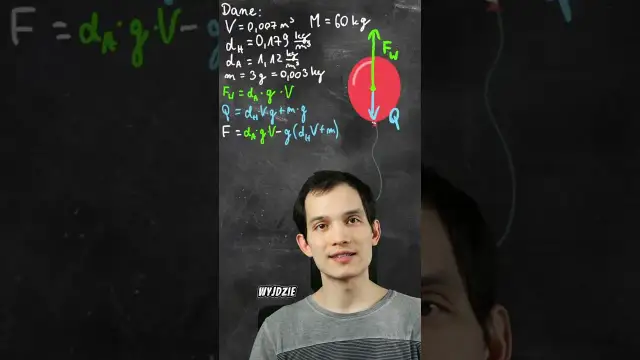 Dane:
V = 0,007 m³ M = 60 kg
d_H = 0,179 kg/m³
d_A = 1,12 kg/m³
m = 3 g = 0,003 kg
F_W = d_A · g · V
Q = d_H · V · g + m · g
F = d_A · g · V - g (d_H V + m)
F_W
Q
WYJDZIE
F = d_A · g · V - g